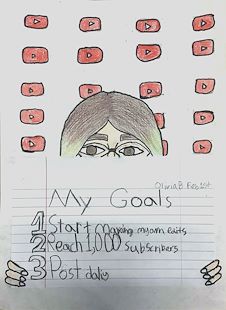 Olivia B Feb 1st
My Goals
1 Start making my own edits
2 Reach 1,000 Subscribers
3 Post daily